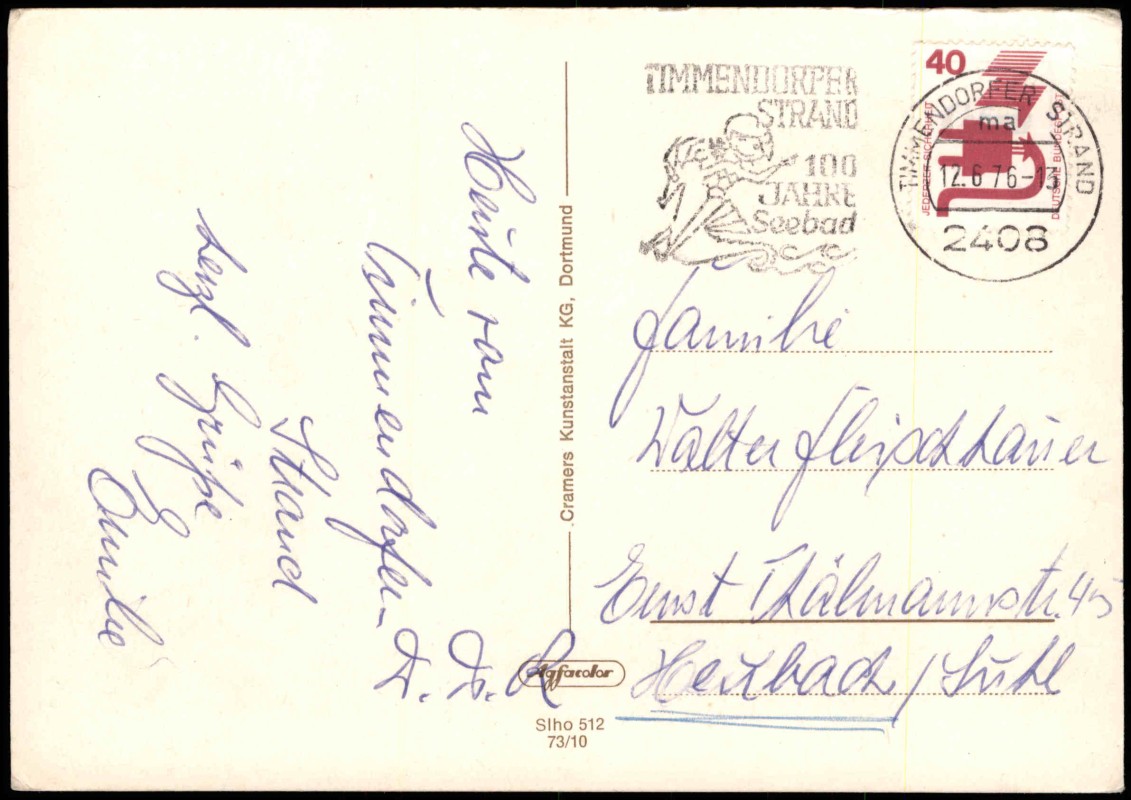 Heute vom
Timmendorfer-
Strand
herzl. Grüße
Emilie
.Cramers Kunstanstalt KG, Dortmund
Agfacolor
Slho 512
73/10
TIMMENDORFER
STRAND
100
JAHRE
Seebad
40
JEDERZEIT SICHERHEIT
DEUTSCHE BUNDESPOST
TIMMENDORFER STRAND
ma
12.6.76-13
2408
Familie
Walter Fleischhauer
Ernst Thälmannstr. 45
Heubach / Suhl
D. D. R